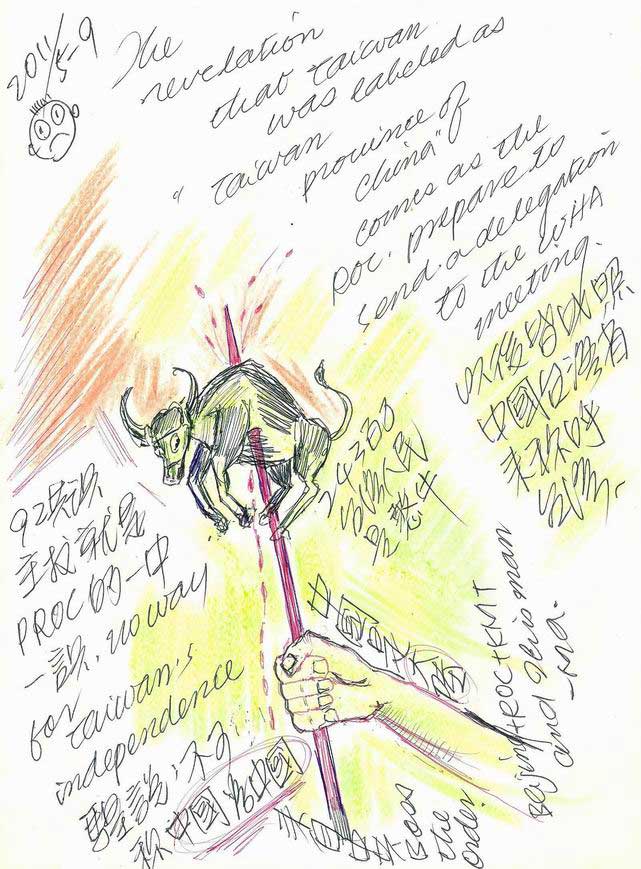 2011/5-9
The
revelation
that Taiwan
was labeled as
"Taiwan
province of
China"
comes as the
ROC. prepare to
send a delegation
to the WHA
meeting.
以後皆以照
中國台灣省
來称呼
台灣.
台灣人民
是憨牛
92共识
主权就是
PROC的一中
一說. no way
for
Taiwan's
independence
說:不可
称中國為中國
中國
the
order.
Beijing+ROC+KMT
and his man
-Ma.